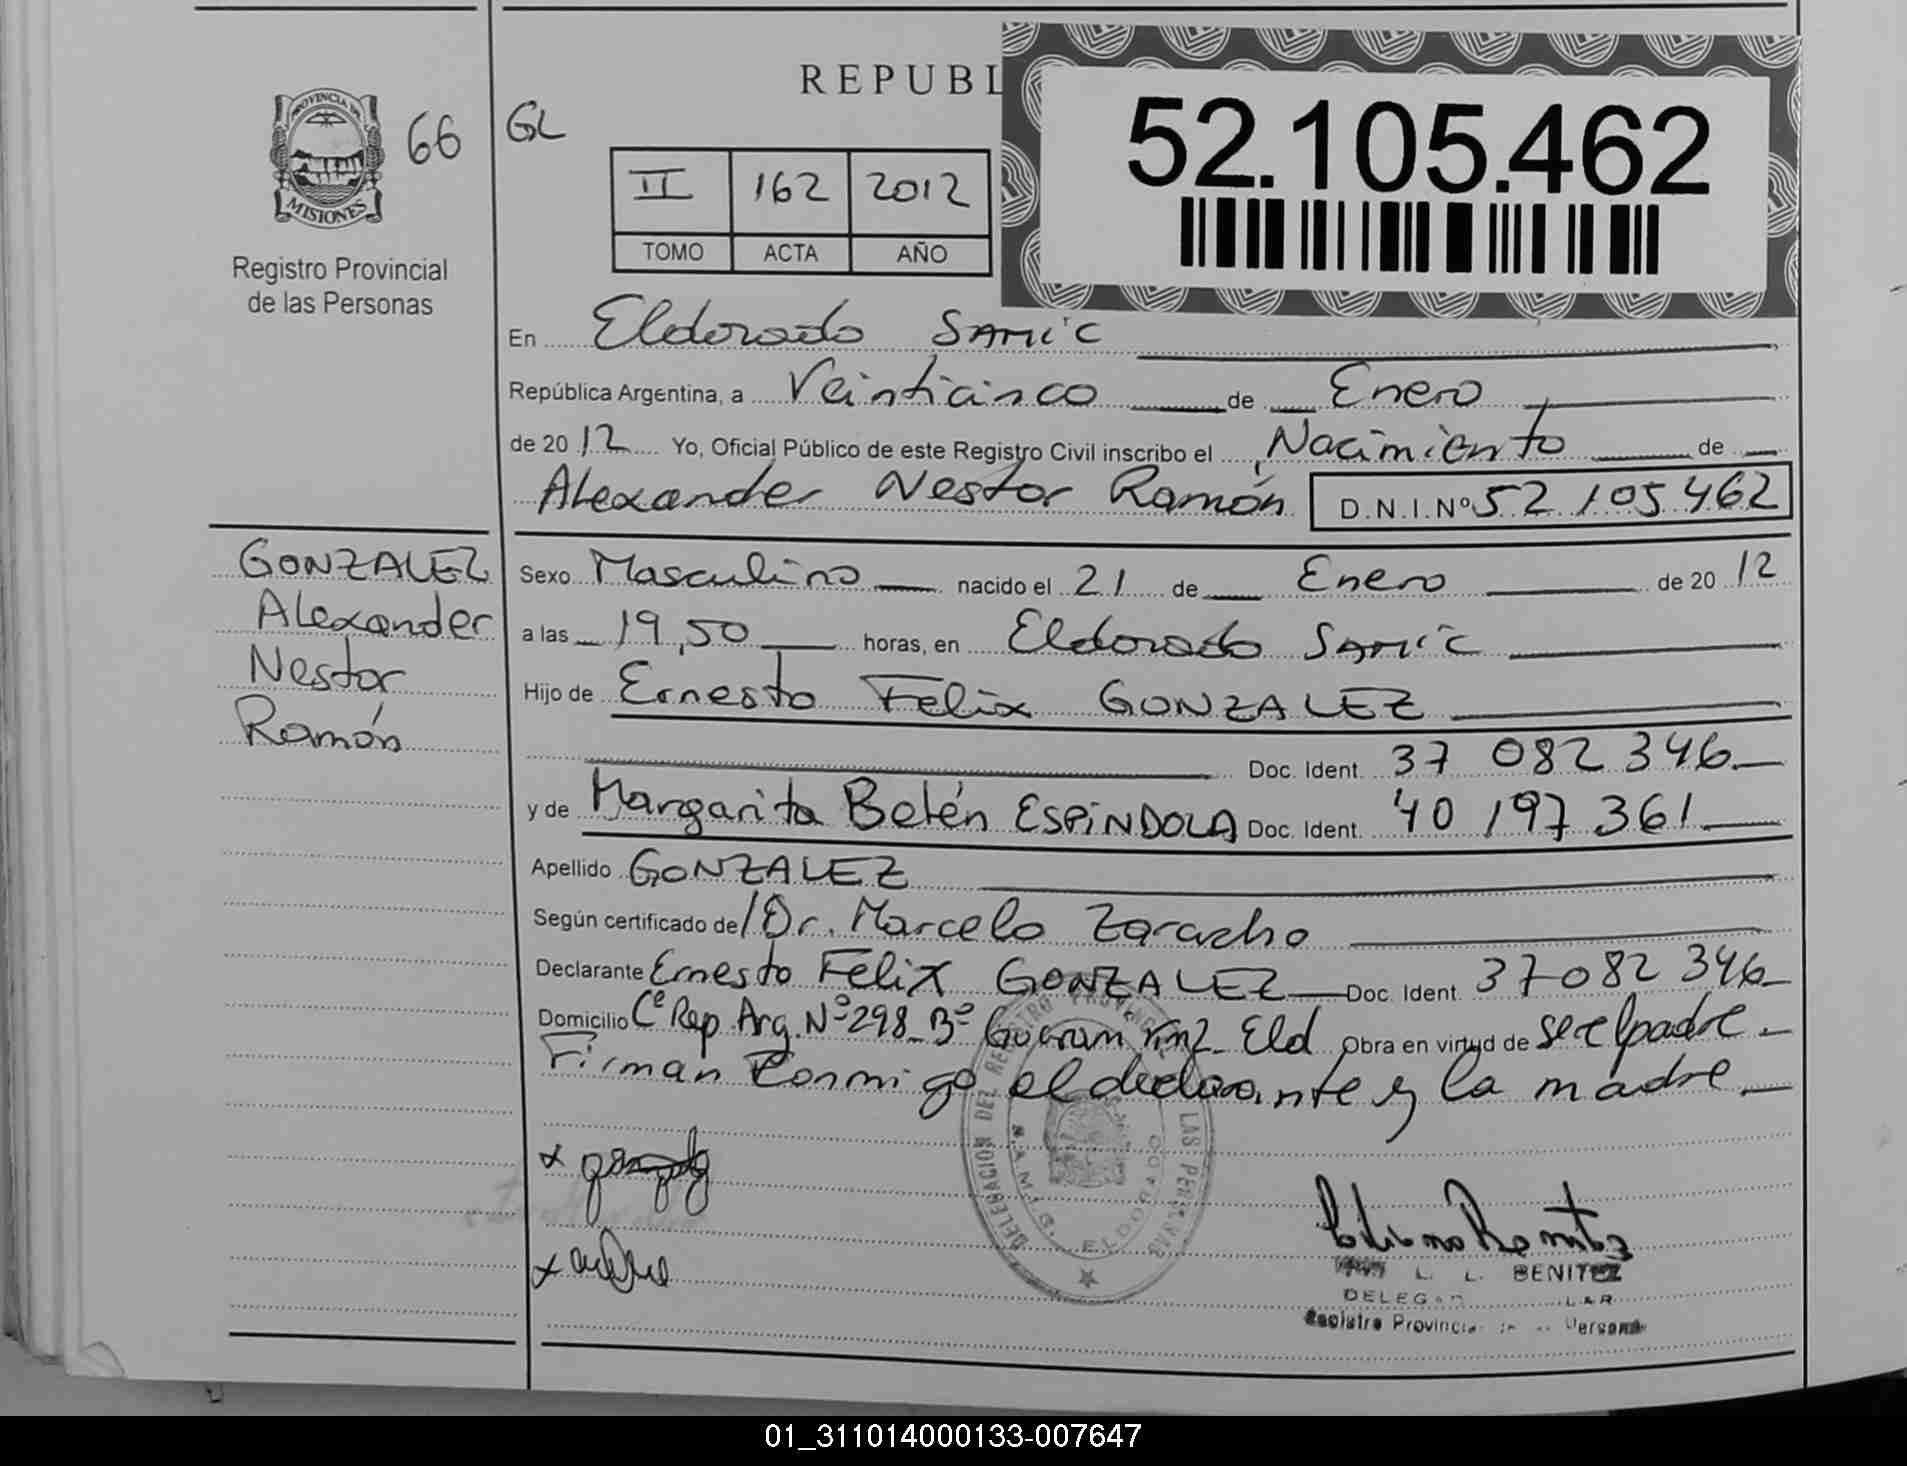 PROVINCIA DE
MISIONES
66
Registro Provincial
de las Personas
GL
REPUBL
II 162 2012
TOMO ACTA AÑO
52.105.462
En Eldorado SAMIC
República Argentina, a Veinticinco de Enero
de 2012 Yo, Oficial Público de este Registro Civil inscribo el Nacimiento de
Alexander Nestor Ramón D.N.I.Nº 52 105 462
GONZALEZ
Alexander
Nestor
Ramón
Sexo Masculino nacido el 21 de Enero de 2012
a las 19,50 horas, en Eldorado SAMIC
Hijo de Ernesto Felix GONZALEZ
Doc. Ident. 37 082 346
y de Margarita Belén ESPíNDOLA Doc. Ident. 40 197 361
Apellido GONZALEZ
Según certificado de Dr. Marcelo Zaracho
Declarante Ernesto Felix GONZALEZ Doc. Ident. 37 082 346
Domicilio Cº Rep. Arg. Nº 298 Bº Km2 Eld Obra en virtud de ser el padre
Firman Conmigo el declarante y la madre
DELEGACION DEL REGISTRO PROVINCIAL LAS PERSONAS
S.A.M.I.C. ELDORADO
L. L. BENITEZ
Registro Provincial
01_311014000133-007647